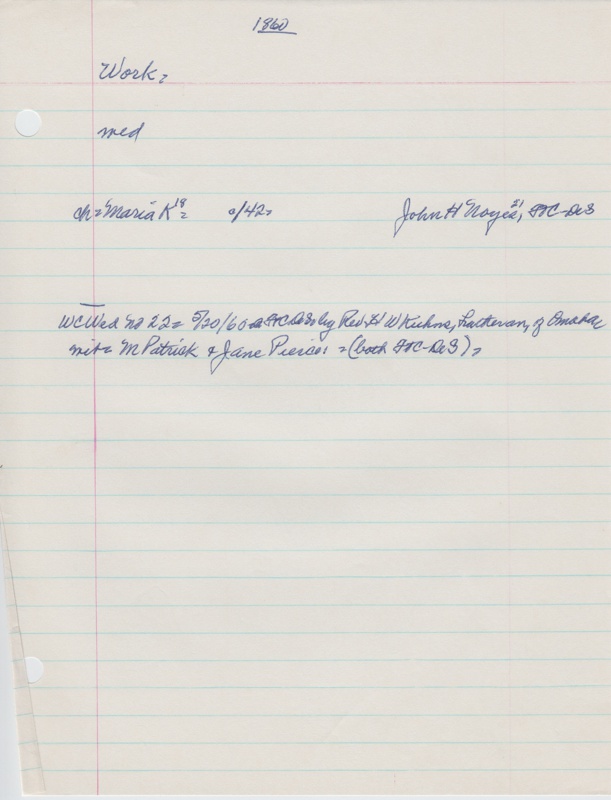 1860
Work =
med
ch = Maria K 18 = c/42 = John H Noyes, 21, FTC-DeS
WC Wed No 22 = 5/20/60 a FTC DeS by Rev. H W Kuhns, Lutheran, of Omaha,
wit = M Patrick & Jane Pierce = (both FTC-DeS) =